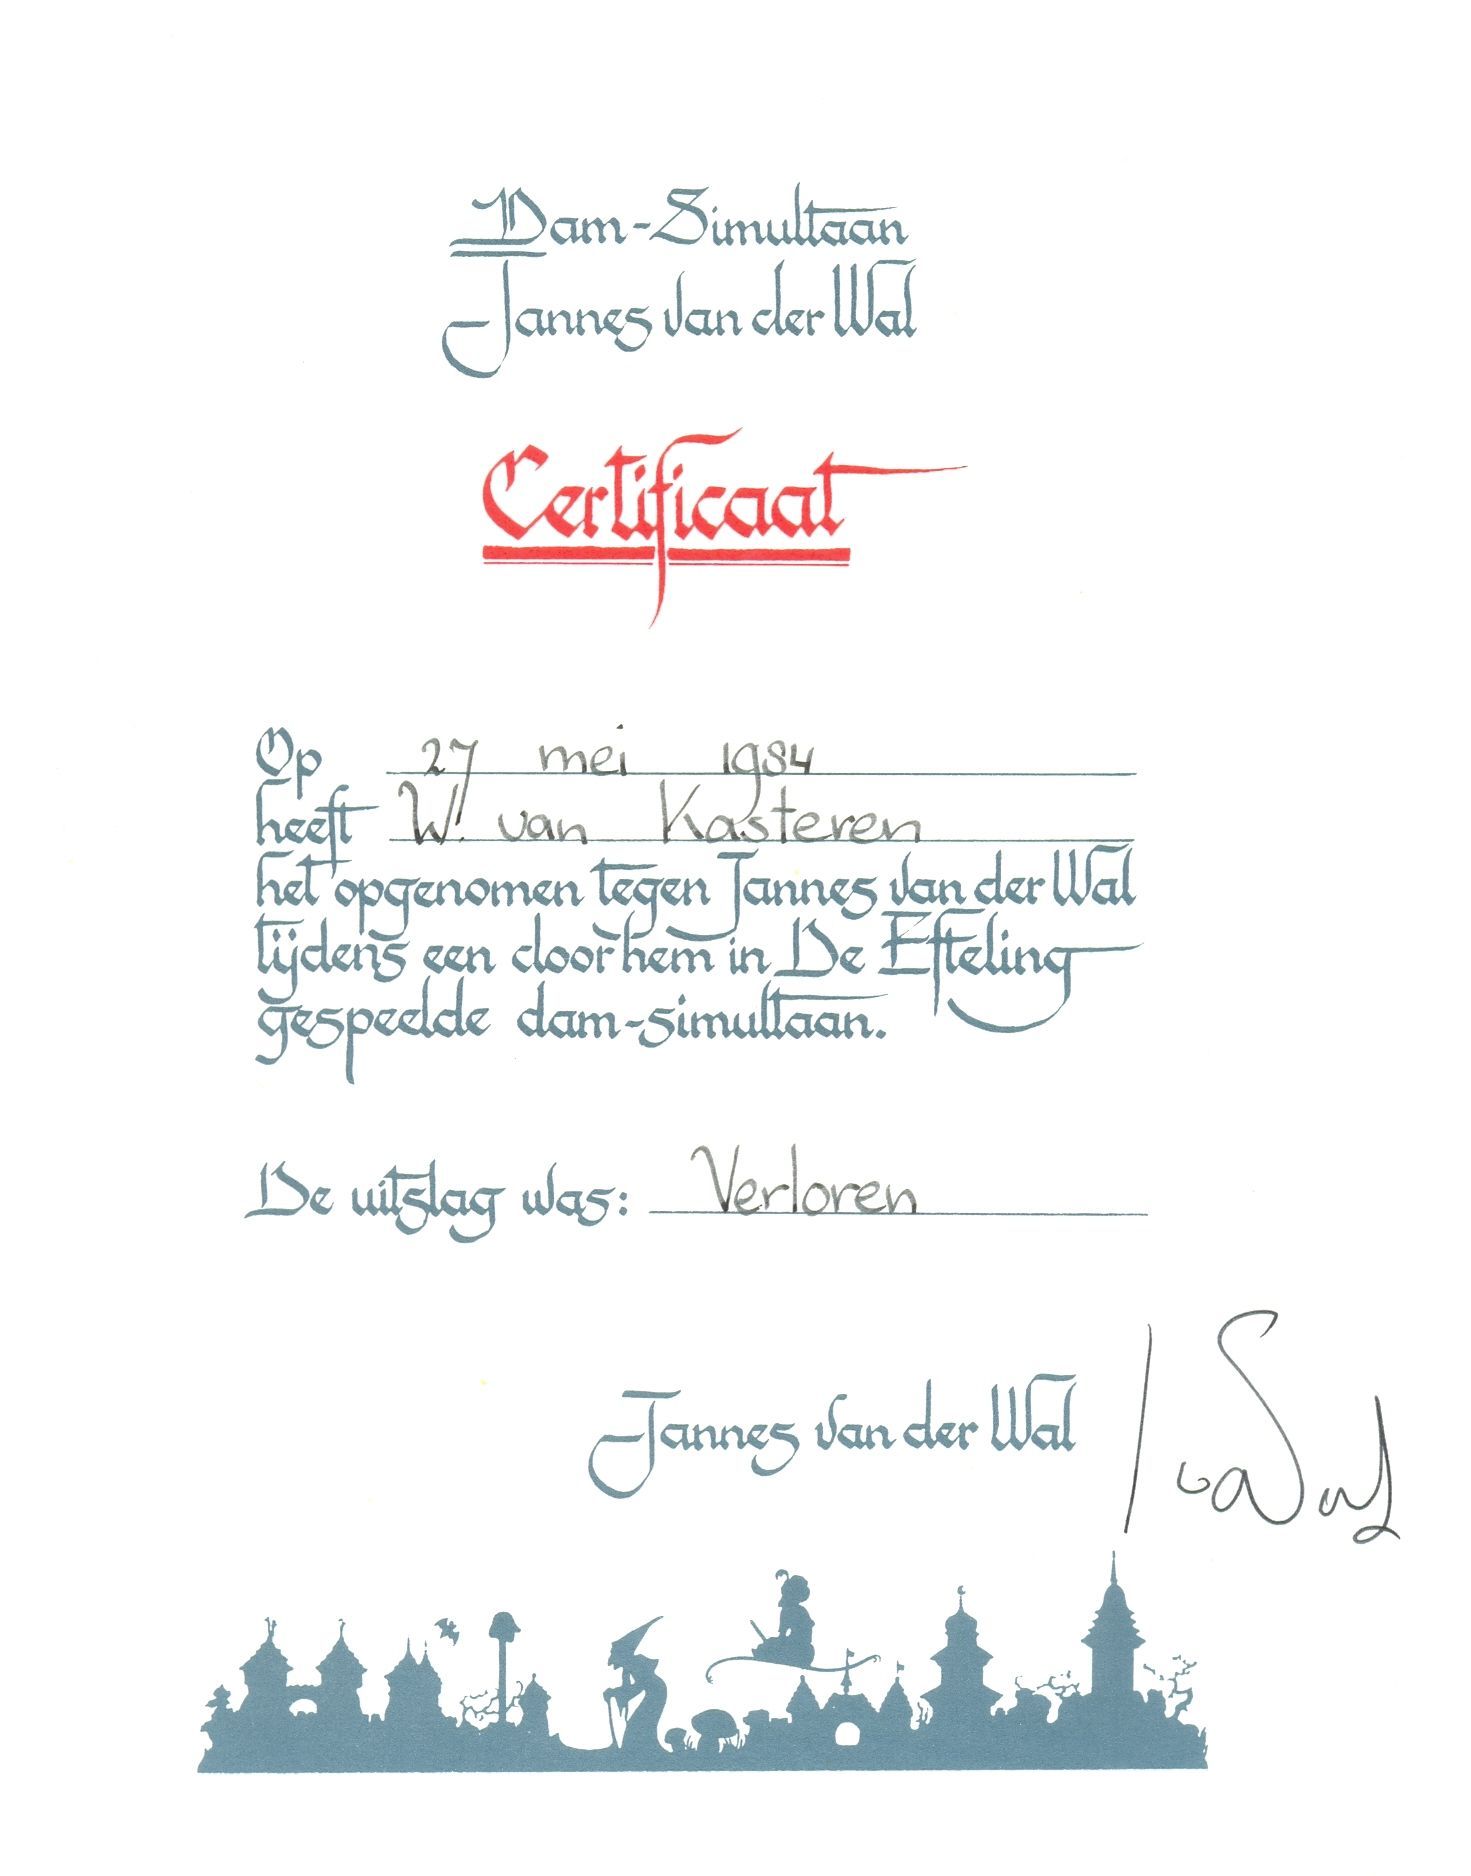 Dam-Simultaan
Jannes van der Wal
Certificaat
Op 27 mei 1984
heeft W. van Kasteren
het opgenomen tegen Jannes van der Wal
tijdens een door hem in De Efteling
gespeelde dam-simultaan.
De uitslag was: Verloren
Jannes van der Wal